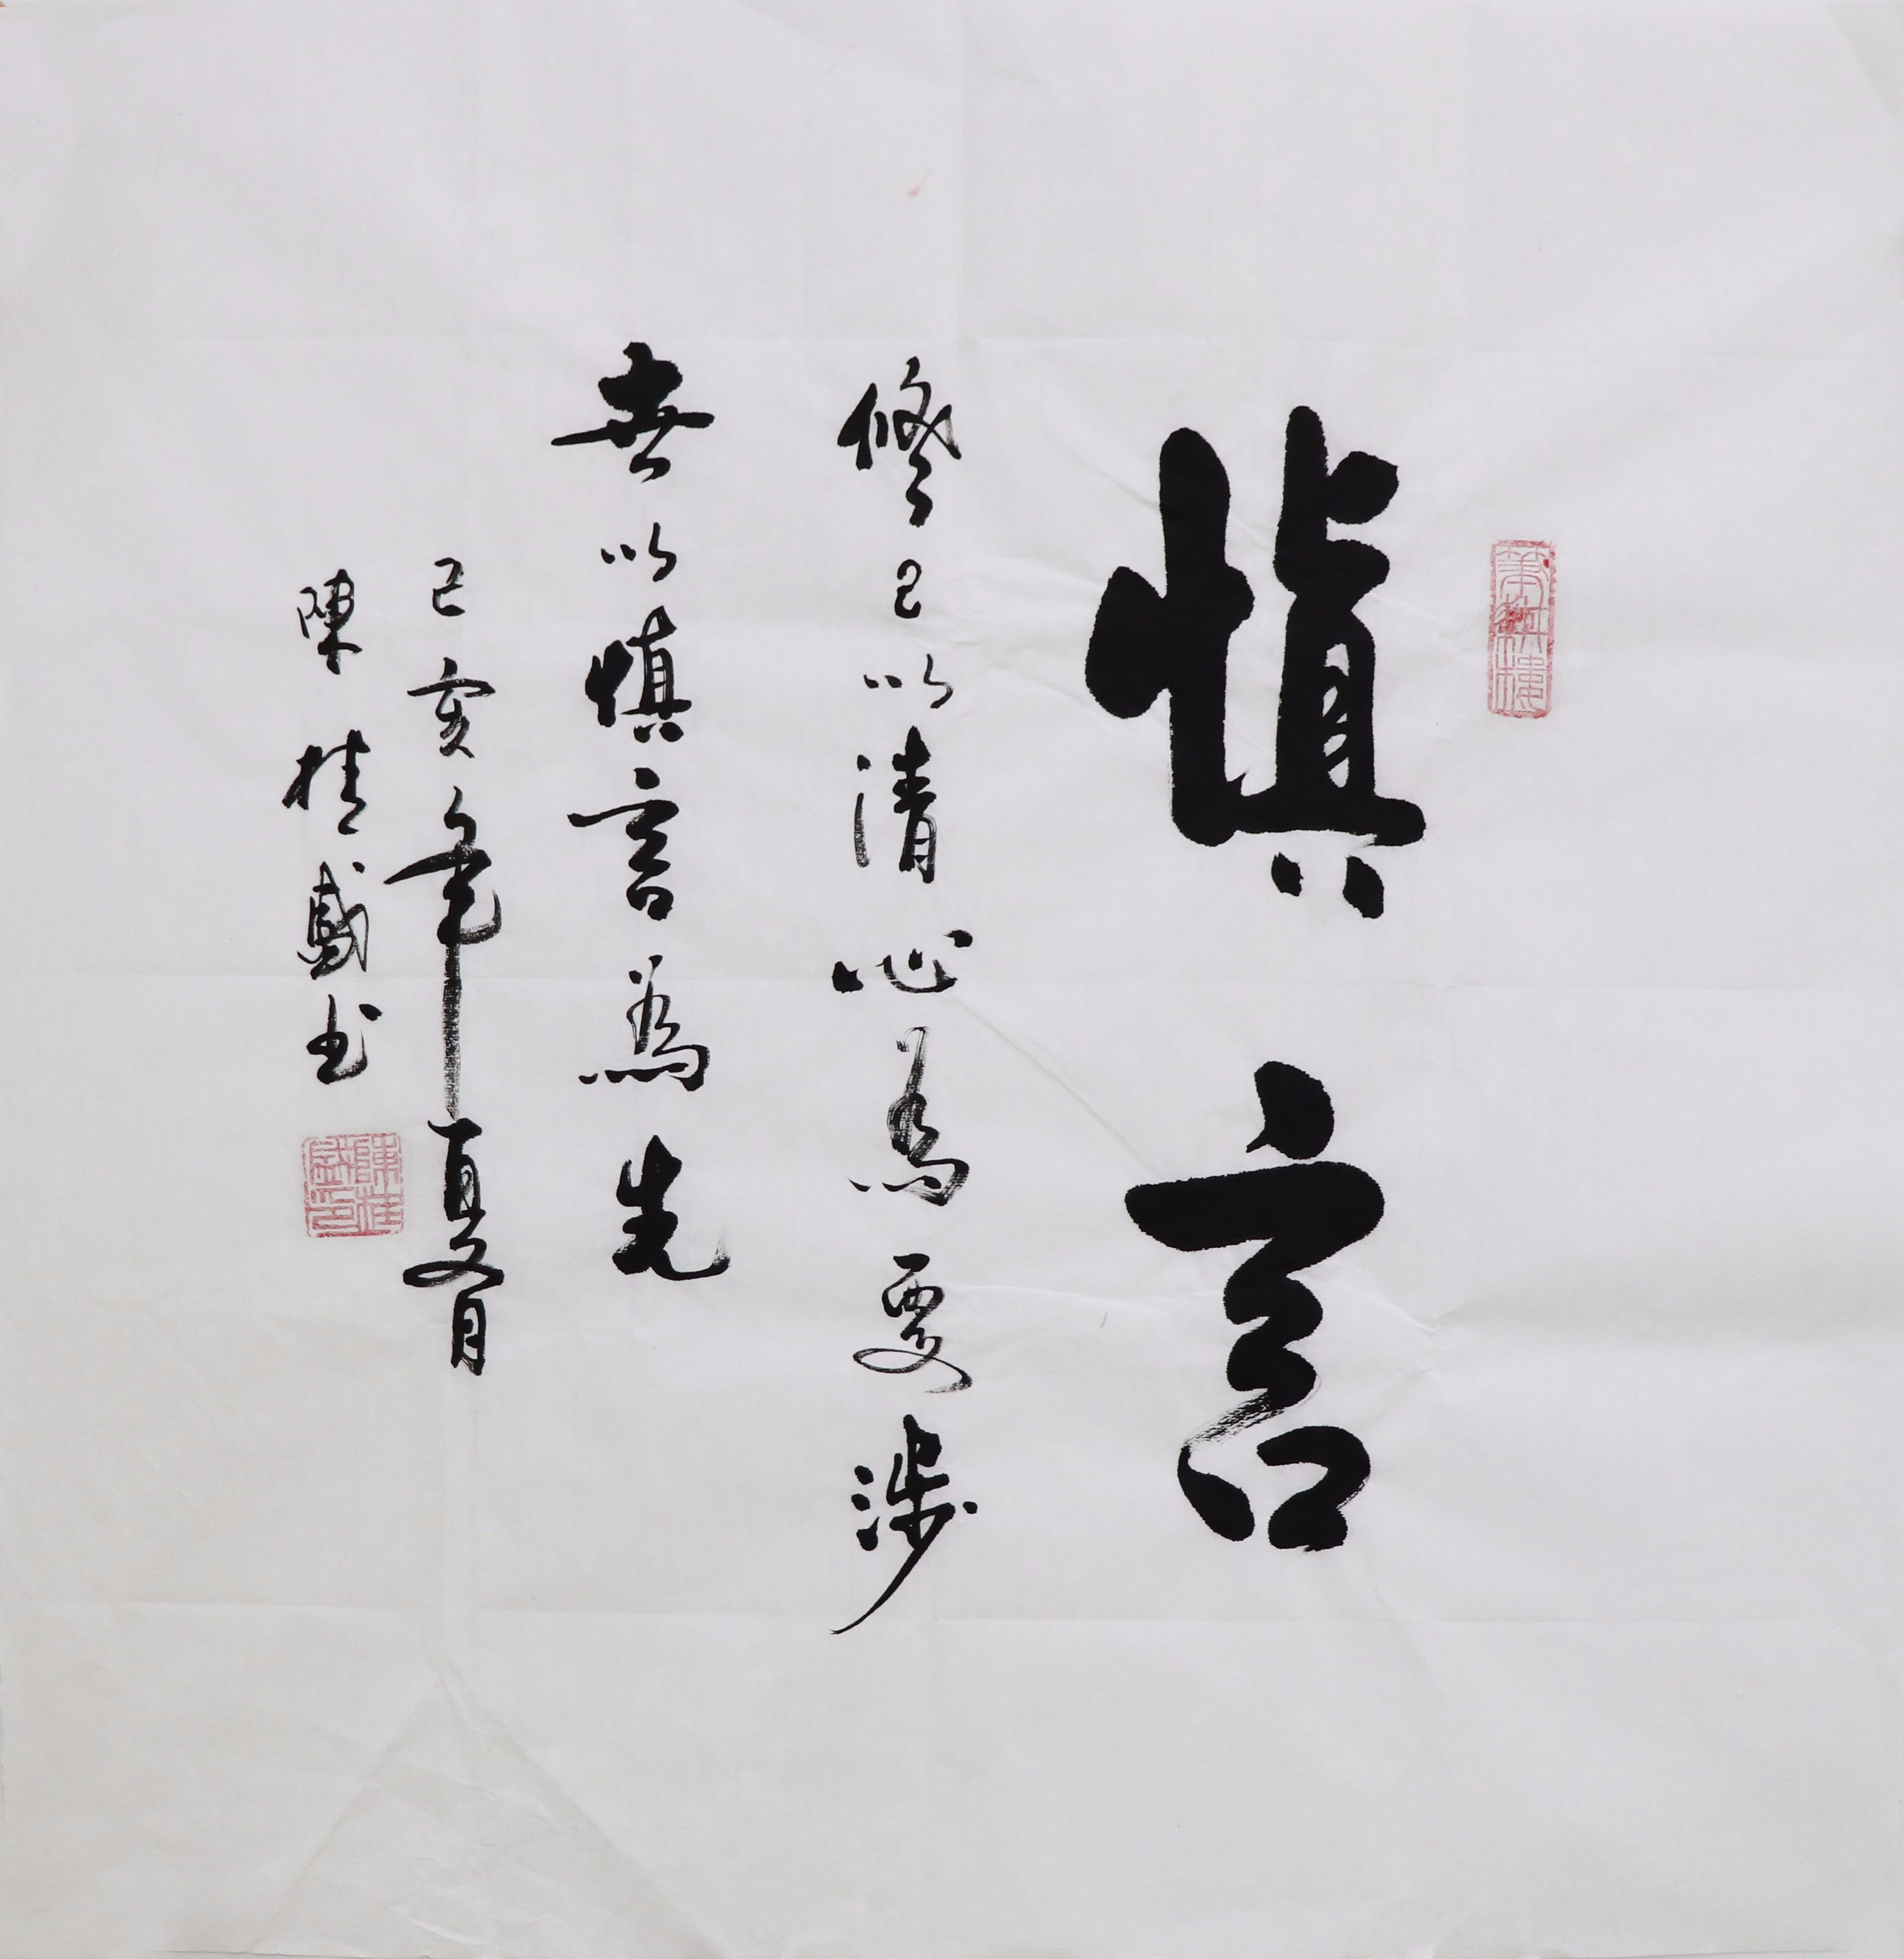 慎言
修己以清心為要涉
世以慎言為先
己亥年夏月
陳桂盛书
陳桂盛印